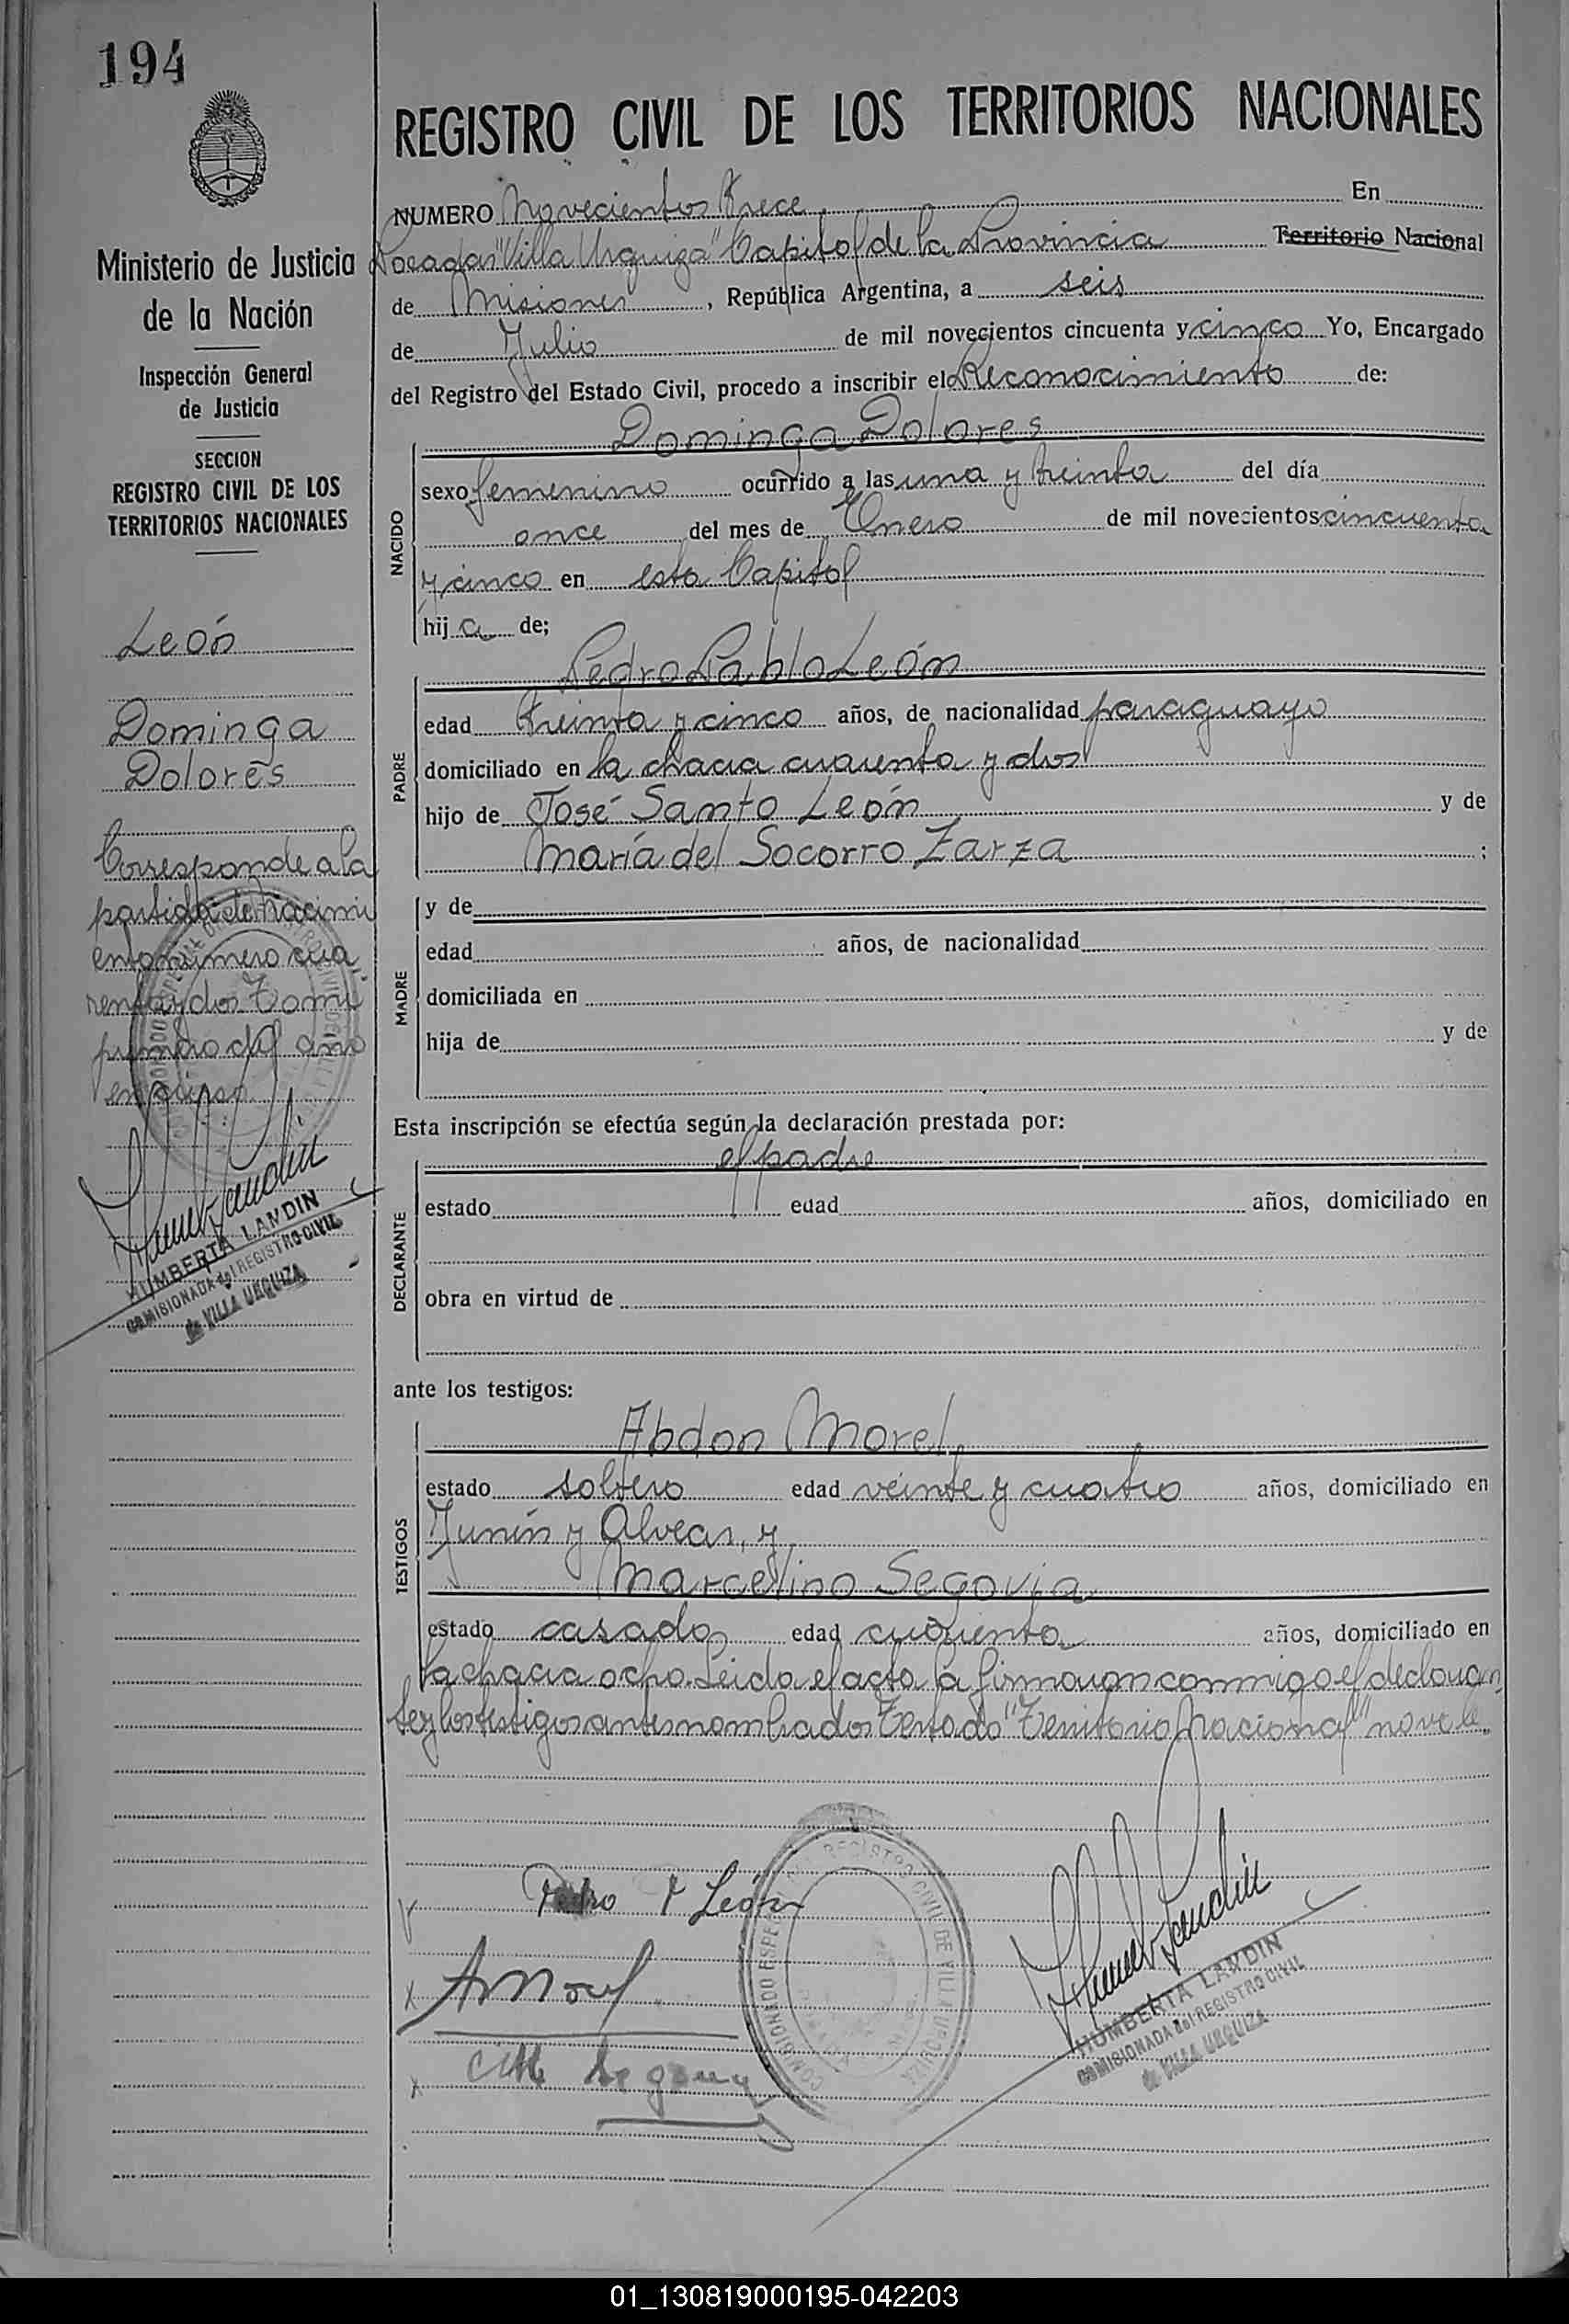 194
Ministerio de Justicia
de la Nación
Inspección General
de Justicia
SECCION
REGISTRO CIVIL DE LOS
TERRITORIOS NACIONALES
León
Dominga
Dolores
Corresponde a la
partida de nacimi
ento número cua
renta y dos Tomo
primero del año
en curso
HUMBERTA LANDIN
COMISIONADA del REGISTRO CIVIL
de VILLA URQUIZA
REGISTRO CIVIL DE LOS TERRITORIOS NACIONALES
NUMERO Novecientos trece En
Posadas "Villa Urquiza" Capital de la Provincia Territorio Nacional
de Misiones, República Argentina, a seis
de Julio de mil novecientos cincuenta y cinco Yo, Encargado
del Registro del Estado Civil, procedo a inscribir el Reconocimiento de:
NACIDO
Dominga Dolores
sexo femenino ocurrido a las una y treinta del día
once del mes de Enero de mil novecientos cincuenta
y cinco en esta Capital
hij a de;
PADRE
Pedro Pablo León
edad treinta y cinco años, de nacionalidad paraguayo
domiciliado en la chacra cuarenta y dos
hijo de José Santo León y de
María del Socorro Zarza ;
MADRE
y de
edad años, de nacionalidad
domiciliada en
hija de y de
Esta inscripción se efectúa según la declaración prestada por:
DECLARANTE
el padre
estado edad años, domiciliado en
obra en virtud de
ante los testigos:
TESTIGOS
Abdon Morel,
estado soltero edad veinte y cuatro años, domiciliado en
Junín y Alvear, y
Marcelino Segovia
estado casado edad cuarenta años, domiciliado en
la chacra ocho. Leida el acta la firmaron conmigo el declaran
te y los testigos antes nombrados Testado "Territorio Nacional" no vale.
Pedro P León
AMorel
Segovia
REGISTRO CIVIL DE VILLA URQUIZA
HUMBERTA LANDIN
COMISIONADA del REGISTRO CIVIL
de VILLA URQUIZA
01_130819000195-042203